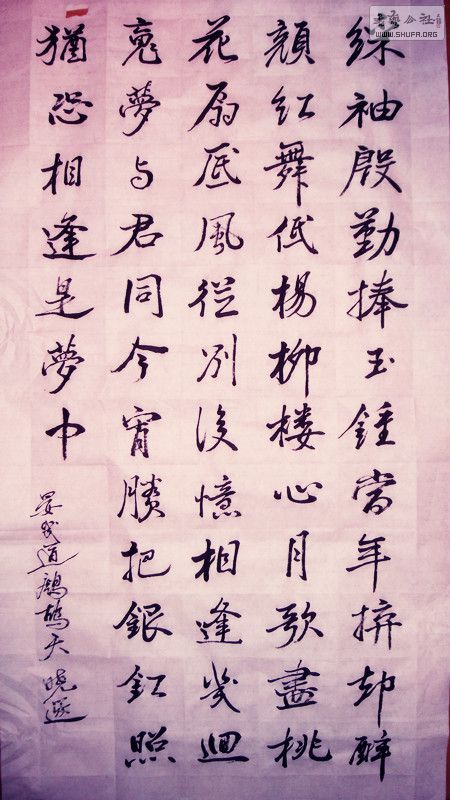 綵袖殷勤捧玉鍾當年拚却醉
顔紅舞低楊柳楼心月歌盡桃
花扇底風從别後憶相逢幾迴
魂夢与君同今宵賸把銀釭照
猶恐相逢是夢中
晏幾道鷓鴣天
WWW.SHUFA.ORG